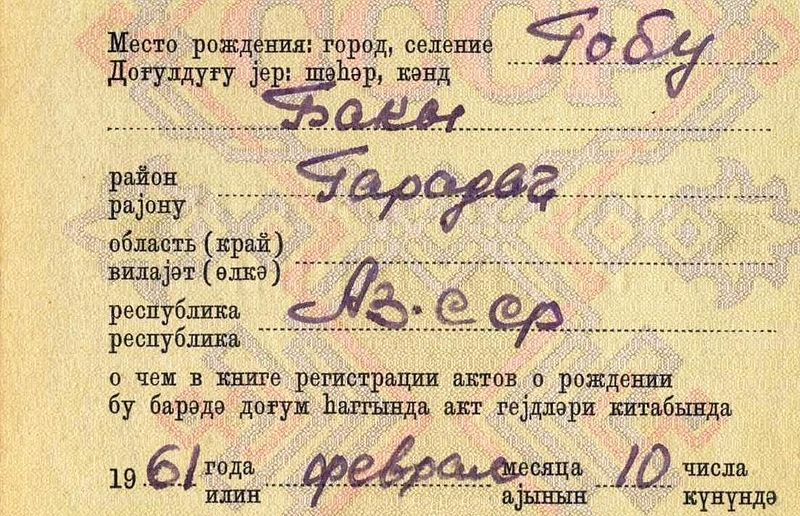 Место рождения: город, селение Гобу
Доғулдуғу јер: шәһәр, кәнд
Бакы
район Гарадағ
рајону
область (край)
вилајәт (өлкә)
республика Аз. ССР
республика
о чем в книге регистрации актов о рождении
бу барәдә доғум һаггында акт гејдләри китабында
1961 года феврал месяца 10 числа
илин ајынын күнүндә